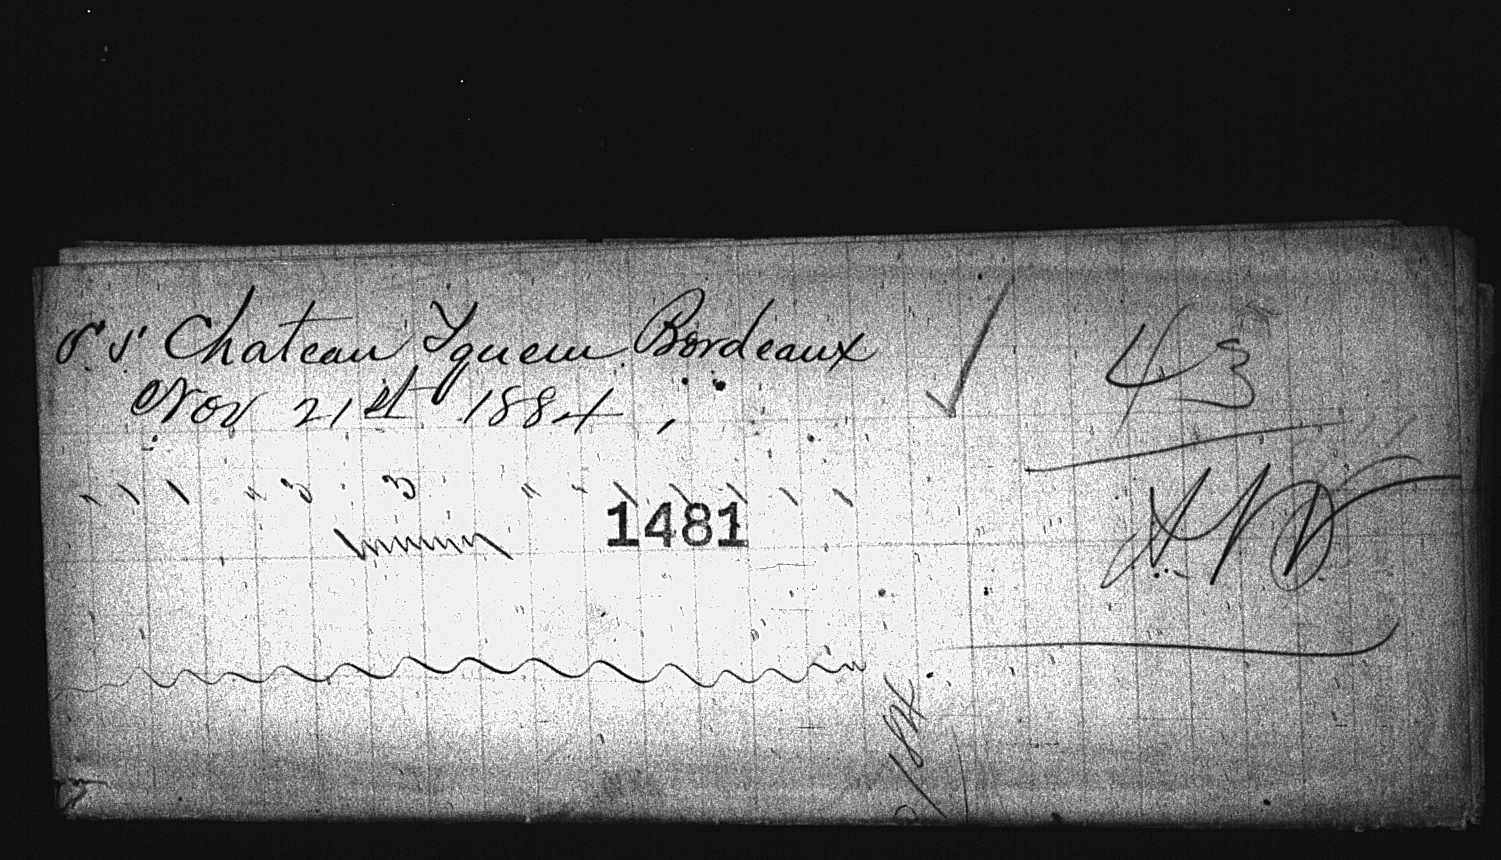 S.S. Chateau Yquem Bordeaux
Nov 21st 1884,
43
1481